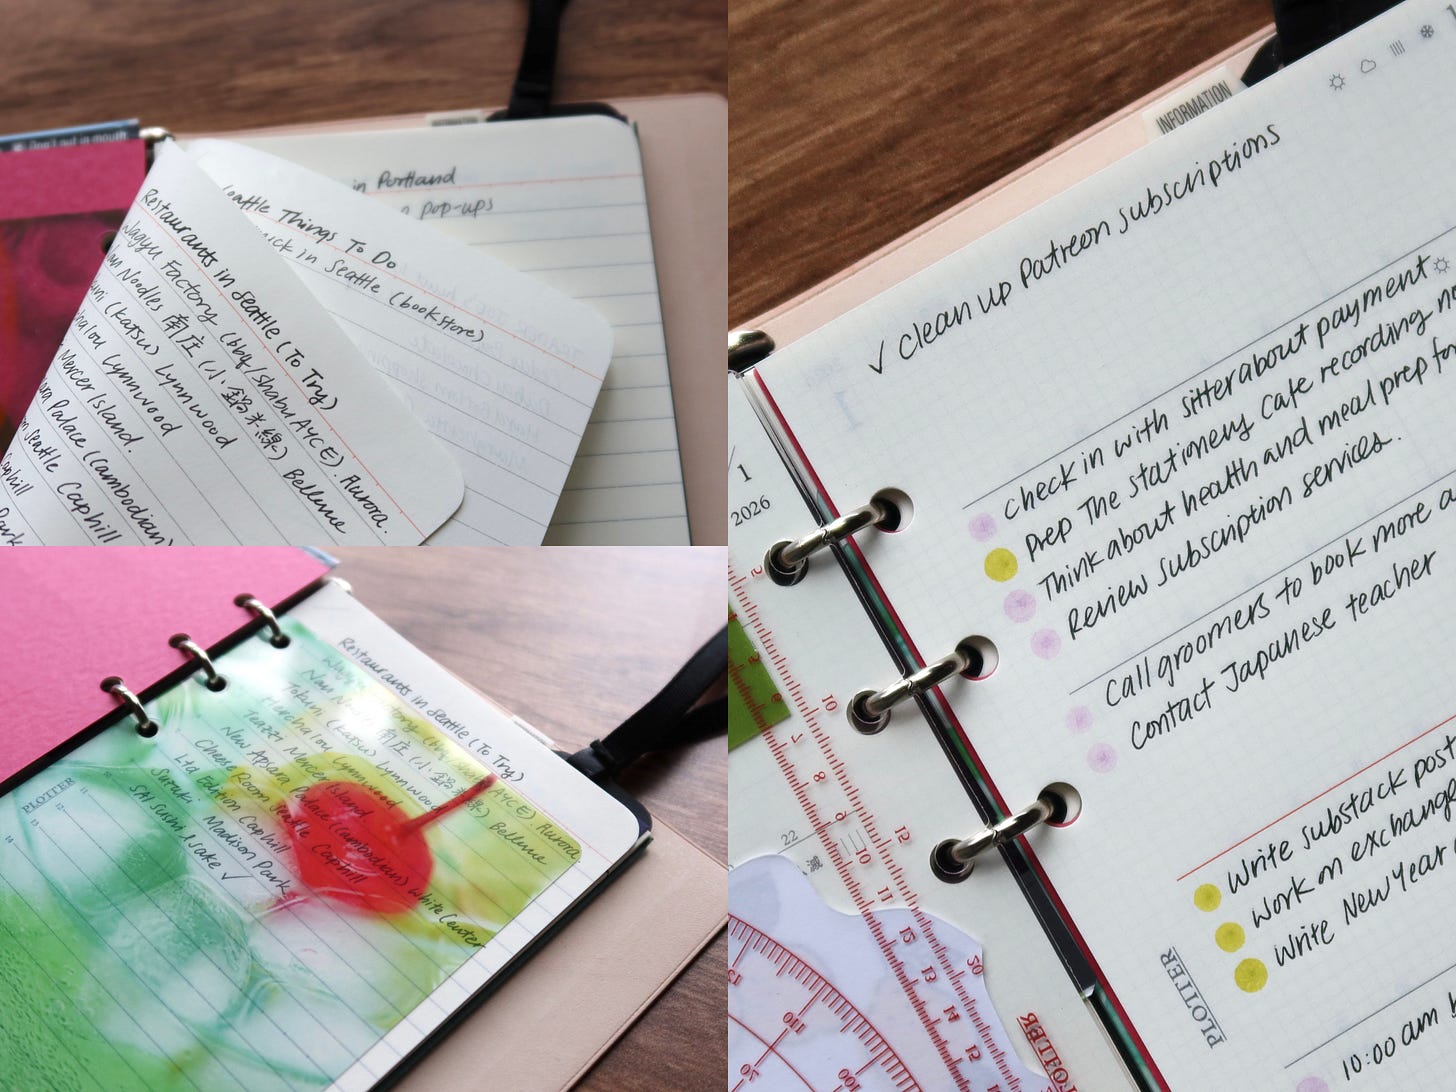 Don't put in mouth
in Portland
pop-ups
Seattle Things To Do
in Seattle (bookstore)
Restaurants in Seattle (To Try)
Wagyu Factory (bbq/shabu AYCE) Aurora.
Noodles 南庄 (小鍋米線) Bellevue
(katsu) Lynnwood
Lynnwood
Mercer Island.
Palace (Cambodian)
Seattle Caphill
Caphill
Park
Restaurants in Seattle (To Try)
AYCE) Aurora
Nan Noodles 南庄 (小 Bellevue
Tokuni (katsu) Lynnwood
Lynnwood
Teazz Mercer Island
New Apsara Palace (Cambodian) White Center
Cheese Room Seattle Caphill
Ltd Edition Caphill
Suzuki Madison Park
SAI Sushi & Sake ✓
PLOTTER
11
12
13
14
INFORMATION
✓ Clean up Patreon subscriptions
check in with sitter about payment
Prep The Stationery Cafe recording
Think about health and meal prep for
Review subscription services.
Call groomers to book more
Contact Japanese teacher
Write substack post
Work on exchange
Write New Year
10:00 am
PLOTTER
1
2026
22
PLOTTER